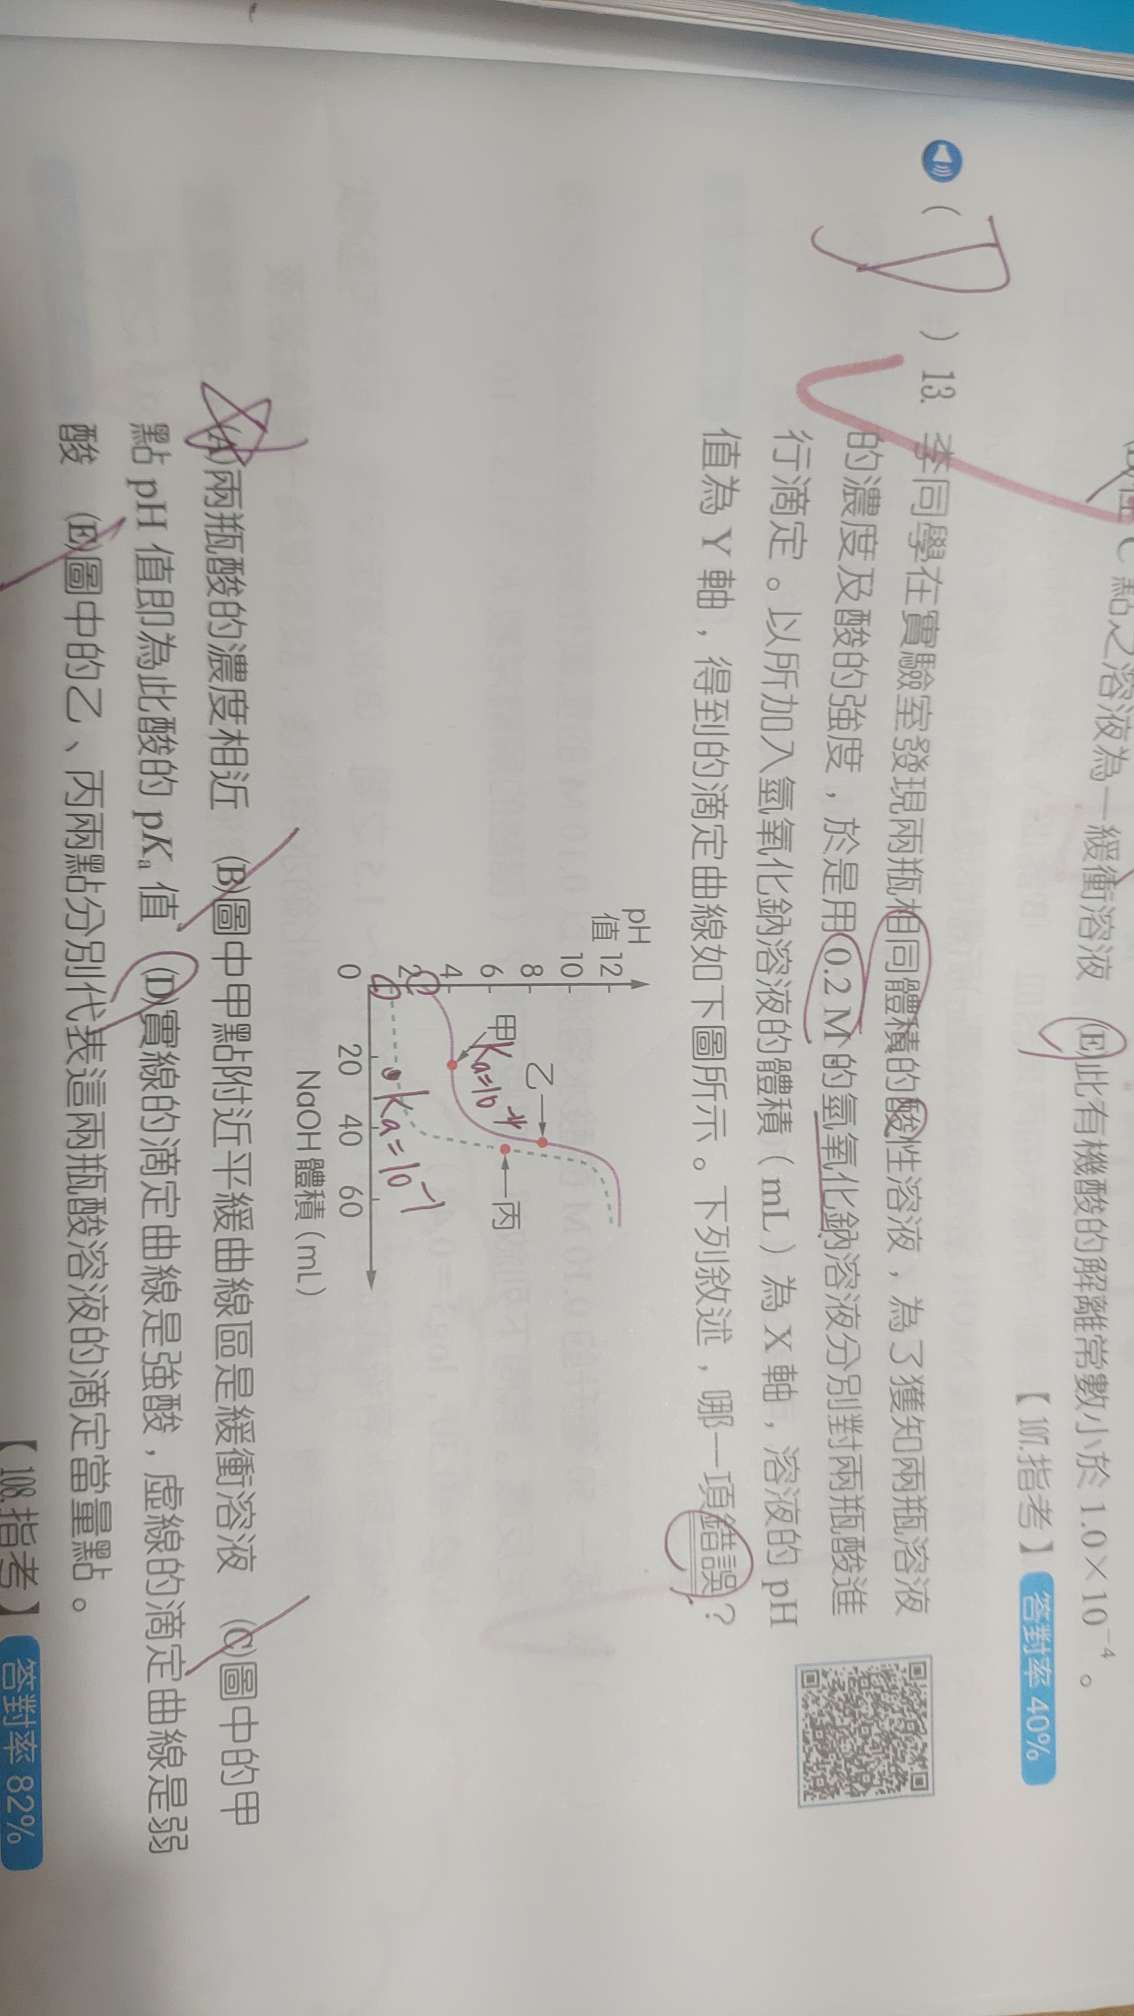 點之溶液為一緩衝溶液 (E)此有機酸的解離常數小於 1.0×10⁻⁴。
【107.指考】答對率 40%
( D ) 13. 李同學在實驗室發現兩瓶相同體積的酸性溶液，為了獲知兩瓶溶液
的濃度及酸的強度，於是用 0.2 M 的氫氧化鈉溶液分別對兩瓶酸進
行滴定。以所加入氫氧化鈉溶液的體積（mL）為 X 軸，溶液的 pH
值為 Y 軸，得到的滴定曲線如下圖所示。下列敘述，哪一項錯誤？
pH
值
12
10
8
6
4
2
0
20
40
60
NaOH 體積（mL）
甲
乙
丙
Ka=10⁻⁴
Ka=10⁻¹
(A)兩瓶酸的濃度相近 (B)圖中甲點附近平緩曲線區是緩衝溶液 (C)圖中的甲
點 pH 值即為此酸的 pKa 值 (D)實線的滴定曲線是強酸，虛線的滴定曲線是弱
酸 (E)圖中的乙、丙兩點分別代表這兩瓶酸溶液的滴定當量點。
【108.指考】答對率 82%